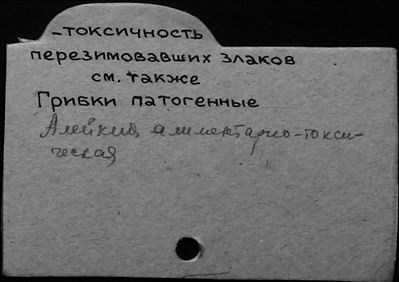 -токсичность
перезимовавших злаков
см. также
Грибки патогенные
Алейкия алиментарно-токси-
ческая